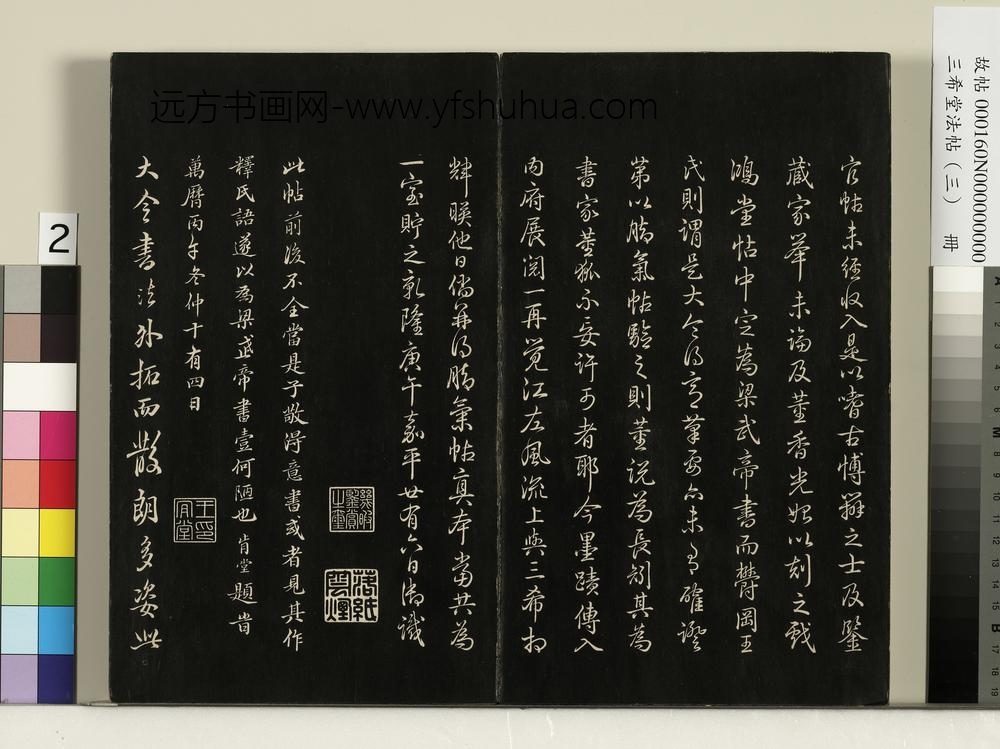 远方书画网-www.yfshuhua.com
故帖 000160N000000000
三希堂法帖（三） 冊
2
官帖未經收入是以嗜古博辨之士及鑒
藏家舉未論及董香光始以刻之戲
鴻堂帖中定為梁武帝書而鬱岡王
氏則謂是大令得意筆要亦未有確證
第以腊氣帖驗之則董說為長剡其為
書家董狐不妄許可者耶今墨蹟傳入
內府展閱一再覺江左風流上與三希相
輝暎他日儻并得腊氣帖真本當共為
一室貯之乾隆庚午嘉平廿有六日御識
幾暇鑒賞之璽
落紙雲煙
此帖前後不全當是子敬得意書或者見其作
釋氏語遂以為梁武帝書壹何陋也肯堂題昔
萬曆丙午冬仲十有四日
王肯堂印
大令書法外拓而散朗多姿此